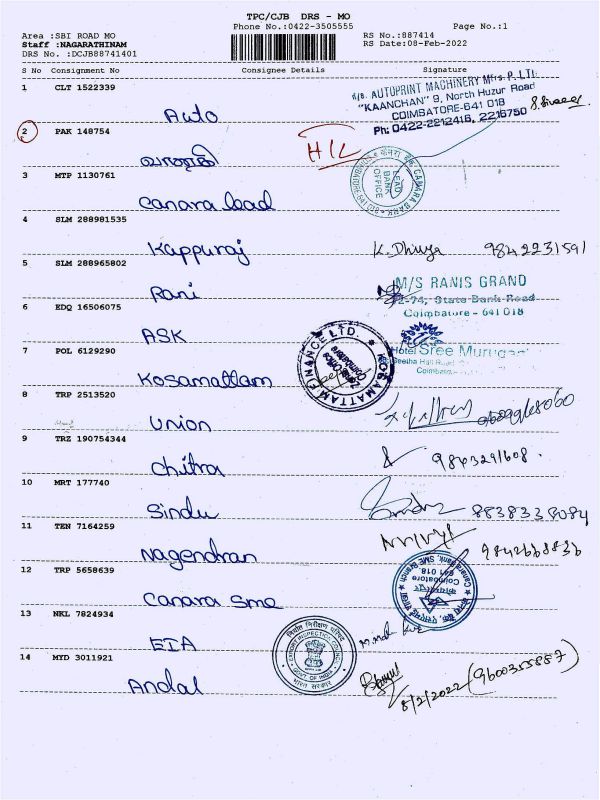 TPC/CJB DRS - MO
Phone No.:0422-3505555
Page No.:1
Area :SBI ROAD MO
RS No.:887414
Staff :NAGARATHINAM
RS Date:08-Feb-2022
DRS No. :DCJB88741401
S No Consignment No Consignee Details Signature
1 CLT 1522339
Auto
M/s. AUTOPRINT MACHINERY Mfrs. P. LTD
"KAANCHAN" 9, North Huzur Road
COIMBATORE-641 018
Ph: 0422-2212416, 2216750
2 PAK 148754
H/L
3 MTP 1130761
Canara lead
CANARA BANK
LEAD
BANK
OFFICE
4 SLM 288981535
Kappuraj
K. Dhivya 9842231591
5 SLM 288965802
Rani
M/S RANIS GRAND
2-74, State Bank Road
Coimbatore - 641 018
6 EDQ 16506075
ASK
Hotel Sree Murugan
Geetha Hall Road
Coimbatore
7 POL 6129290
Kosamattam
KOSAMATTAM FINANCE LTD.
8 TRP 2513520
Union
9 TRZ 190754344
Chitra
9843291608.
10 MRT 177740
Sindu
11 TEN 7164259
Nagendran
12 TRP 5658639
Canara Sme
Canara Bank, SME Branch
Coimbatore
641 018
13 NKL 7824934
EIA
EXPORT INSPECTION COUNCIL
GOVT. OF INDIA
भारत सरकार
14 MYD 3011921
Andal
8/2/2022 (9600355887)